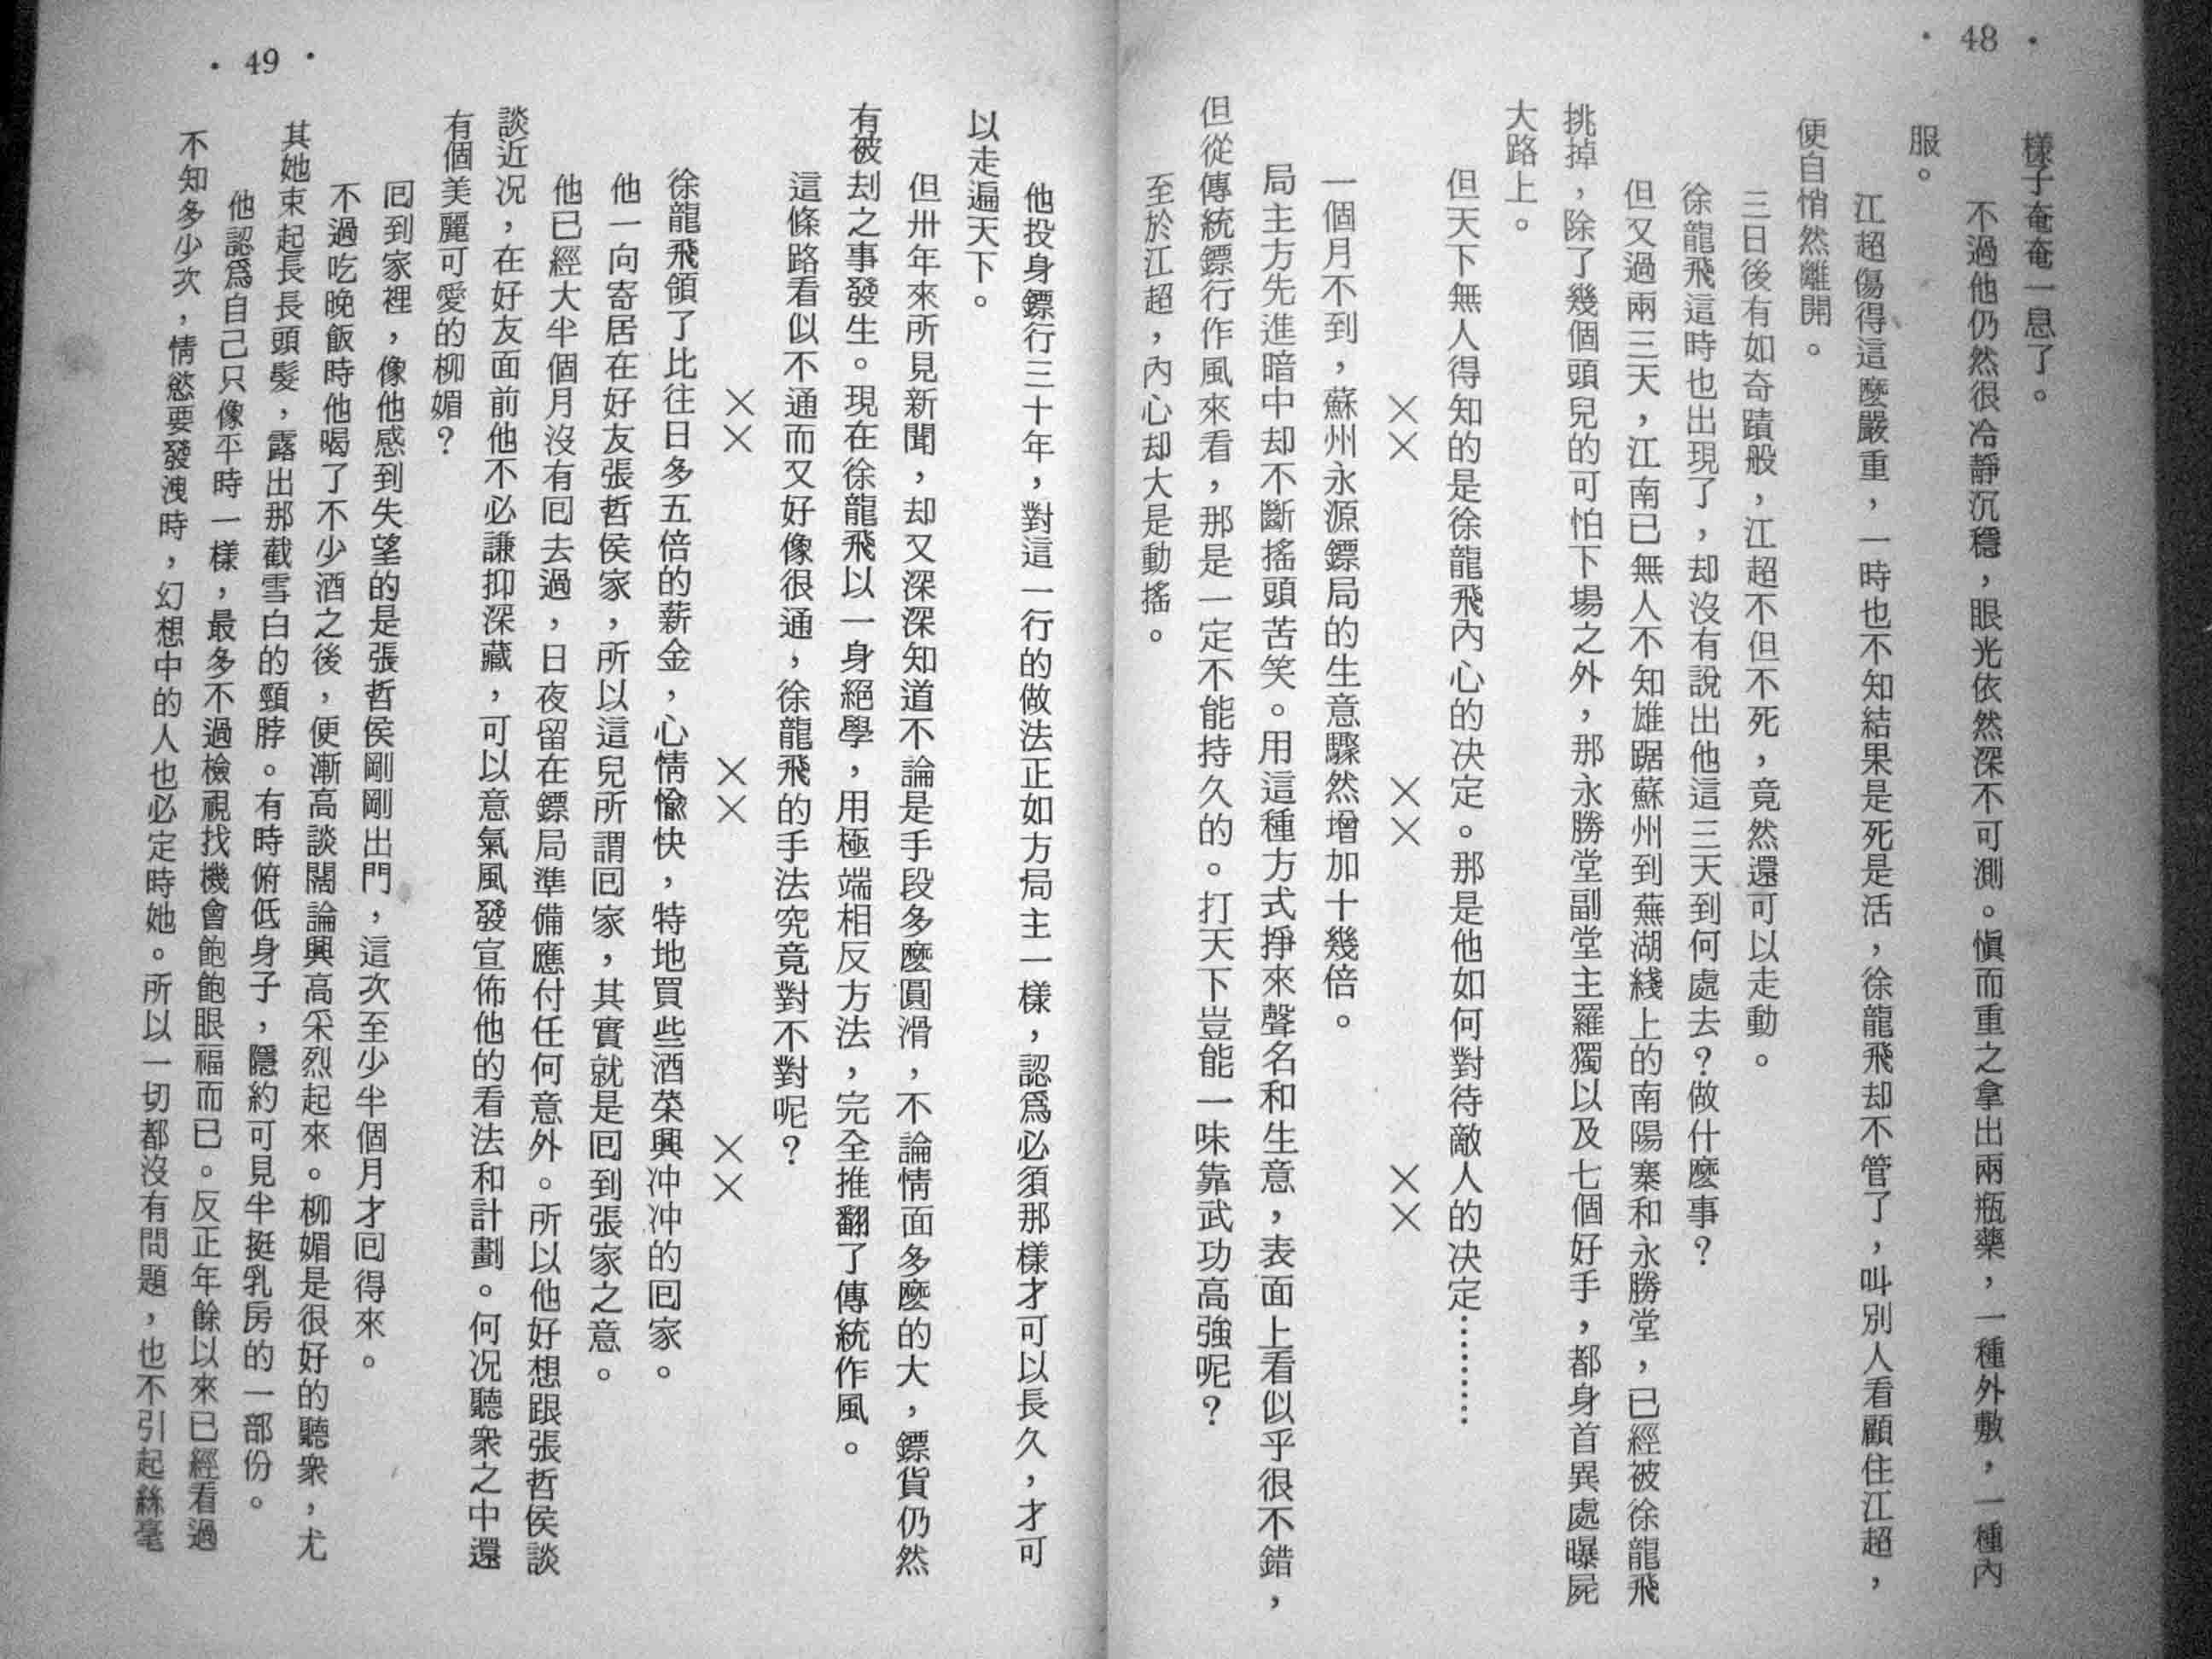 • 48 •
樣子奄奄一息了。
不過他仍然很冷靜沉穩，眼光依然深不可測。愼而重之拿出兩瓶藥，一種外敷，一種內
服。
江超傷得這麼嚴重，一時也不知結果是死是活，徐龍飛却不管了，叫別人看顧住江超，
便自悄然離開。
三日後有如奇蹟般，江超不但不死，竟然還可以走動。
徐龍飛這時也出現了，却沒有說出他這三天到何處去？做什麼事？
但又過兩三天，江南已無人不知雄踞蘇州到蕪湖綫上的南陽寨和永勝堂，已經被徐龍飛
挑掉，除了幾個頭兒的可怕下場之外，那永勝堂副堂主羅獨以及七個好手，都身首異處曝屍
大路上。
但天下無人得知的是徐龍飛內心的決定。那是他如何對待敵人的決定…………
××　××　××
一個月不到，蘇州永源鏢局的生意驟然增加十幾倍。
局主方先進暗中却不斷搖頭苦笑。用這種方式掙來聲名和生意，表面上看似乎很不錯，
但從傳統鏢行作風來看，那是一定不能持久的。打天下豈能一味靠武功高強呢？
至於江超，內心却大是動搖。
• 49 •
他投身鏢行三十年，對這一行的做法正如方局主一樣，認爲必須那樣才可以長久，才可
以走遍天下。
但卅年來所見新聞，却又深深知道不論是手段多麼圓滑，不論情面多麼的大，鏢貨仍然
有被刦之事發生。現在徐龍飛以一身絕學，用極端相反方法，完全推翻了傳統作風。
這條路看似不通而又好像很通，徐龍飛的手法究竟對不對呢？
××　××　××
徐龍飛領了比往日多五倍的薪金，心情愉快，特地買些酒菜興冲冲的囘家。
他一向寄居在好友張哲侯家，所以這兒所謂囘家，其實就是囘到張家之意。
他已經大半個月沒有囘去過，日夜留在鏢局準備應付任何意外。所以他好想跟張哲侯談
談近况，在好友面前他不必謙抑深藏，可以意氣風發宣佈他的看法和計劃。何况聽衆之中還
有個美麗可愛的柳媚？
囘到家裡，像他感到失望的是張哲侯剛剛出門，這次至少半個月才囘得來。
不過吃晚飯時他喝了不少酒之後，便漸高談闊論興高采烈起來。柳媚是很好的聽衆，尤
其她束起長長頭髮，露出那截雪白的頸脖。有時俯低身子，隱約可見半挺乳房的一部份。
他認爲自己只像平時一樣，最多不過檢視找機會飽飽眼福而已。反正年餘以來已經看過
不知多少次，情慾要發洩時，幻想中的人也必定時她。所以一切都沒有問題，也不引起絲毫